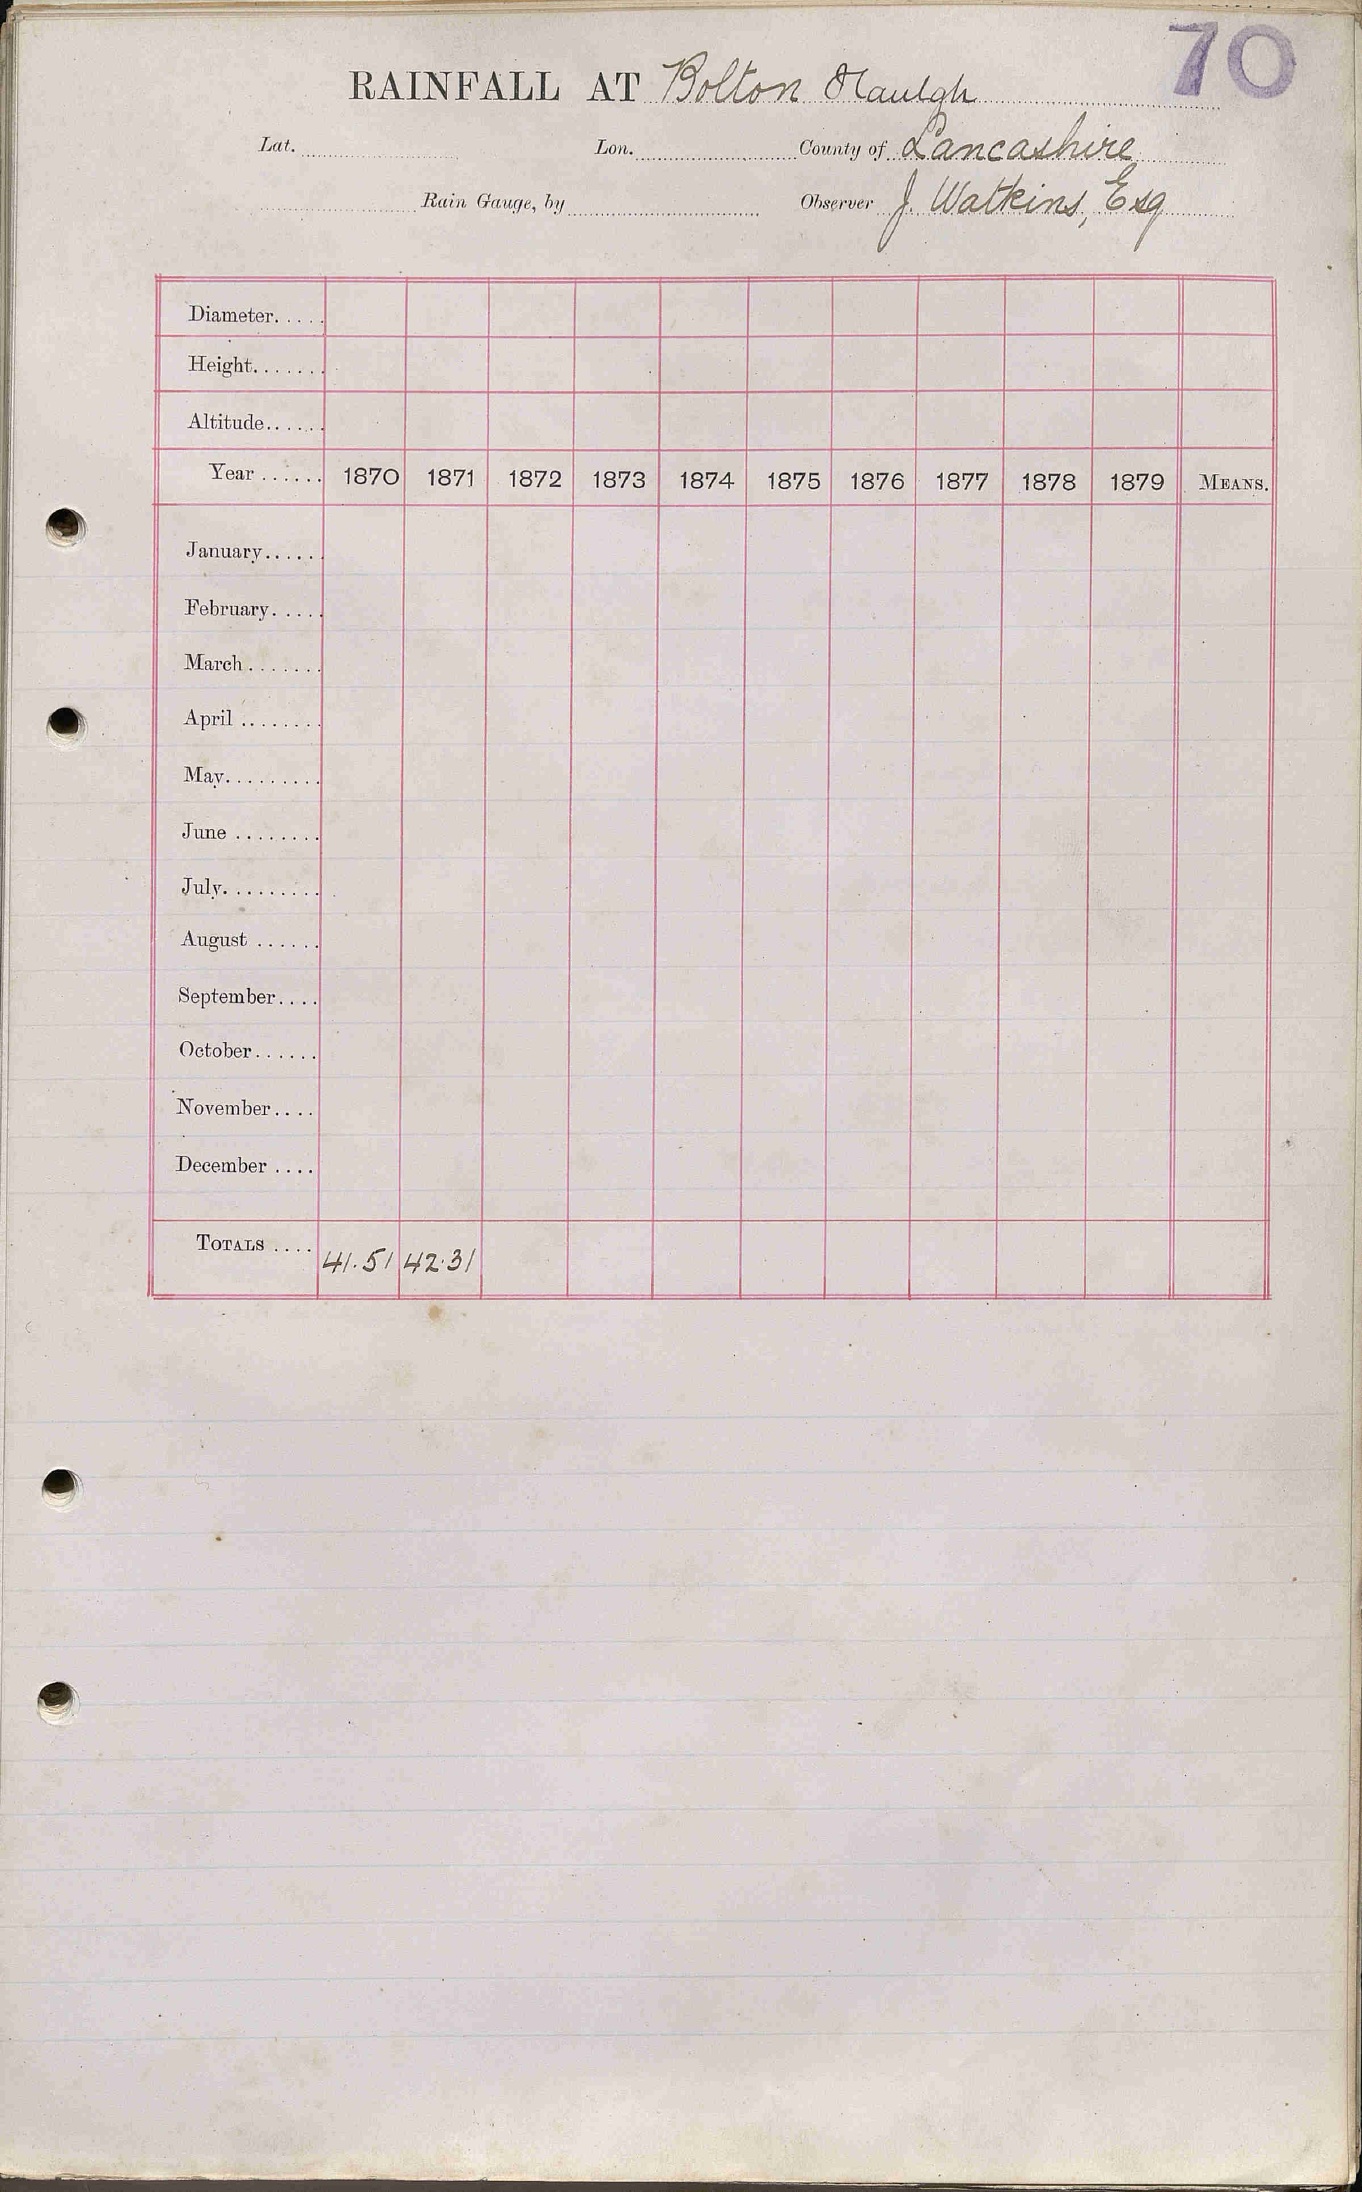 70
RAINFALL AT Bolton Haulgh
Lat. Lon. County of Lancashire
Rain Gauge, by Observer J. Watkins, Esq
Diameter.....
Height.......
Altitude......
Year ...... 1870 1871 1872 1873 1874 1875 1876 1877 1878 1879 MEANS.
January......
February.....
March .......
April ........
May.........
June ........
July.........
August ......
September....
October......
November....
December ....
TOTALS .... 41.51 42.31